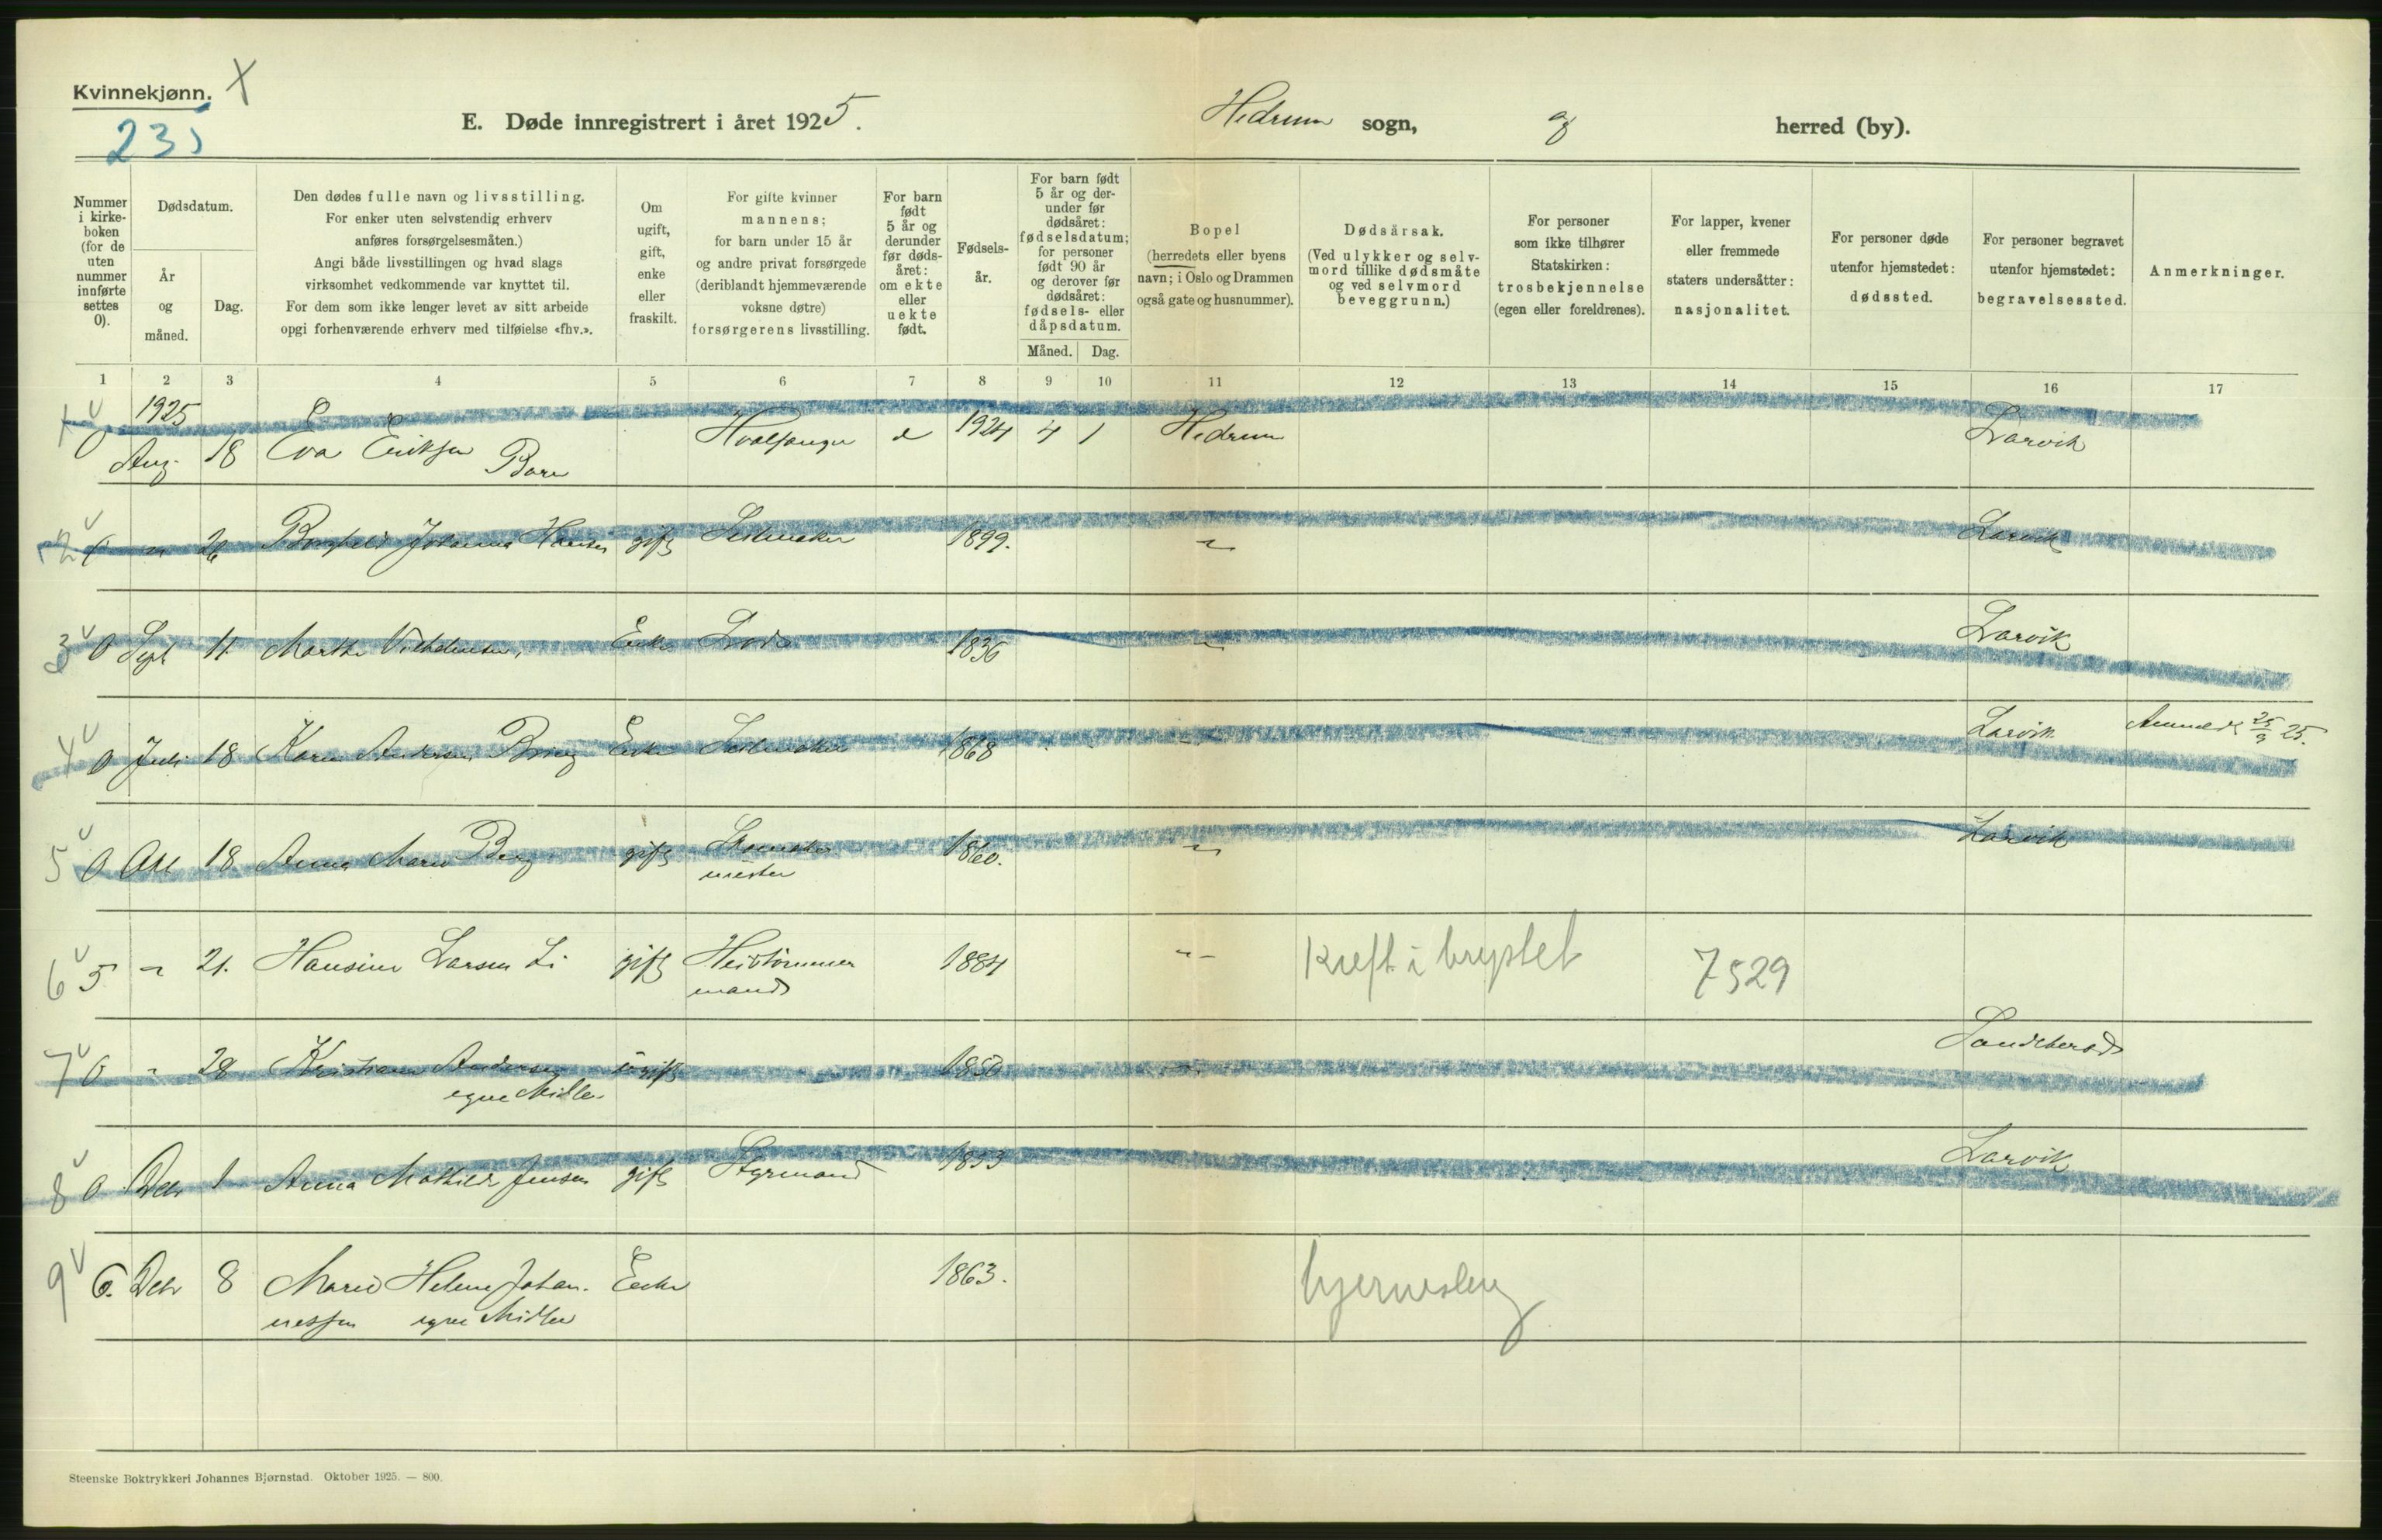 Kvinnekjønn. X
235
E. Døde innregistrert i året 1925. Hedrum sogn, herred (by).
Nummer i kirkeboken (for de uten nummer innførte settes 0).
Dødsdatum.
År og måned.
Dag.
Den dødes fulle navn og livsstilling.
For enker uten selvstendig erhverv
anføres forsørgelsesmåten.)
Angi både livsstillingen og hvad slags
virksomhet vedkommende var knyttet til.
For dem som ikke lenger levet av sitt arbeide
opgi forhenværende erhverv med tilføielse «fhv.».
Om ugift, gift, enke eller fraskilt.
For gifte kvinner
mannens;
for barn under 15 år
og andre privat forsørgede
(deriblandt hjemmeværende
voksne døtre)
forsørgerens livsstilling.
For barn født 5 år og derunder før dødsåret: om ekte eller uekte født.
Fødselsår.
For barn født 5 år og derunder før dødsåret: fødselsdatum; for personer født 90 år og derover før dødsåret: fødsels- eller dåpsdatum.
Måned. Dag.
Bopel
(herredets eller byens
navn; i Oslo og Drammen
også gate og husnummer).
Dødsårsak.
(Ved ulykker og selvmord tillike dødsmåte og ved selvmord beveggrunn.)
For personer
som ikke tilhører
Statskirken:
trosbekjennelse
(egen eller foreldrenes).
For lapper, kvener
eller fremmede
staters undersåtter:
nasjonalitet.
For personer døde
utenfor hjemstedet:
dødssted.
For personer begravet
utenfor hjemstedet:
begravelsessted.
Anmerkninger.
1 2 3 4 5 6 7 8 9 10 11 12 13 14 15 16 17
1 0 1925 Aug. 18 Eva Eriksen Barn Hvalfanger e 1924 4 1 Hedrum Larvik
2 0 " 26 Borghild Johanna Hansen gift Seilmaker 1899. " Larvik
3 0 Sept 11. Marthe Enke Lods 1836 " Larvik
4 0 Juli 18 Karen Andersen Bring Enke Seilmaker 1868 " Larvik Anmeldt 25/9 25.
5 0 Okt 18. Anna Marie Berg gift Skomaker 1860. " Larvik
mester
6 5 " 21. Hansine Larsen Li gift Heistømmer 1884 " Kreft i brystet 7529
mand
7 0 " 28 Kristiane Andersen ugift 1850 " Sandeherred
egne Midler
8 0 Debr 1 Anna Mathilde Jensen gift Styrmand 1853 Larvik
9 6. Debr 8 Marie Helene Johan- Enke 1863. hjerneslag
nessen egne Midler
Steenske Boktrykkeri Johannes Bjørnstad. Oktober 1925. — 800.